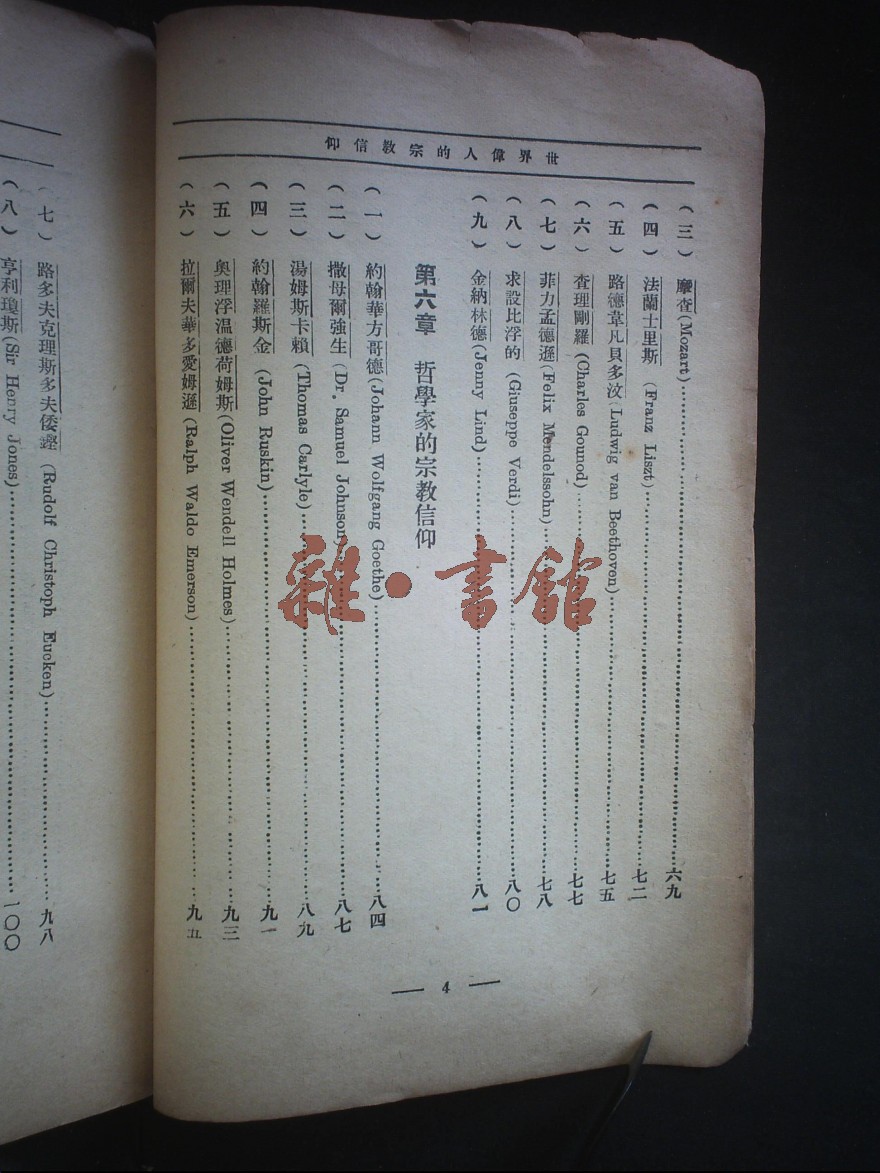 世界偉人的宗教信仰
(三) 摩查 (Mozart) 六九
(四) 法蘭士里斯 (Franz Liszt) 七二
(五) 路德韋凡貝多汶 (Ludwig van Beethoven) 七五
(六) 查理剛羅 (Charles Gounod) 七七
(七) 菲力孟德遜 (Felix Mendelssohn) 七八
(八) 求設比浮的 (Giuseppe Verdi) 八〇
(九) 金納林德 (Jenny Lind) 八一
第六章 哲學家的宗教信仰
(一) 約翰華方哥德 (Johann Wolfgang Goethe) 八四
(二) 撒母爾強生 (Dr. Samuel Johnson) 八七
(三) 湯姆斯卡賴 (Thomas Carlyle) 八九
(四) 約翰羅斯金 (John Ruskin) 九一
(五) 奧理浮温德荷姆斯 (Oliver Wendell Holmes) 九三
(六) 拉爾夫華多愛姆遜 (Ralph Waldo Emerson) 九五
— 4 —
(七) 路多夫克理斯多夫倭鏗 (Rudolf Christoph Eucken) 九八
(八) 亨利瓊斯 (Sir Henry Jones) 一〇〇
雜·書館